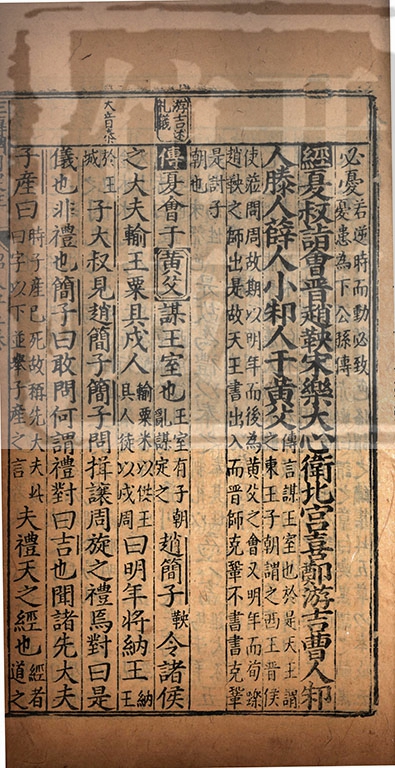 必憂若逆時而動必致
憂患為下公孫傳
經夏叔詣會晉趙鞅宋樂大心衛北宮喜鄭游吉曹人邾
人滕人薛人小邾人于黃父傳言謀王室也於是天王謂
之東王子朝謂之西王晉侯
使涖問周故期以明年而後為黃父之會又明年而荀躒
趙鞅之師出是故天王書出入而晉師克鞏不書書克鞏
是討子
朝也
游吉述
禮儀
傳夏會于黃父謀王室也王室有子朝
亂謀定之趙簡子鞅令諸侯
之大夫輸王粟具戍人輸粟米以供王
具人徒以戍周曰明年將納王納
王
大音泰
於王
城子大叔見趙簡子簡子問揖讓周旋之禮焉對曰是
儀也非禮也簡子曰敢問何謂禮對曰吉也聞諸先大夫
子產曰時子產已死故稱先大夫此
曰字以下並舉子產之言夫禮天之經也經者
道之